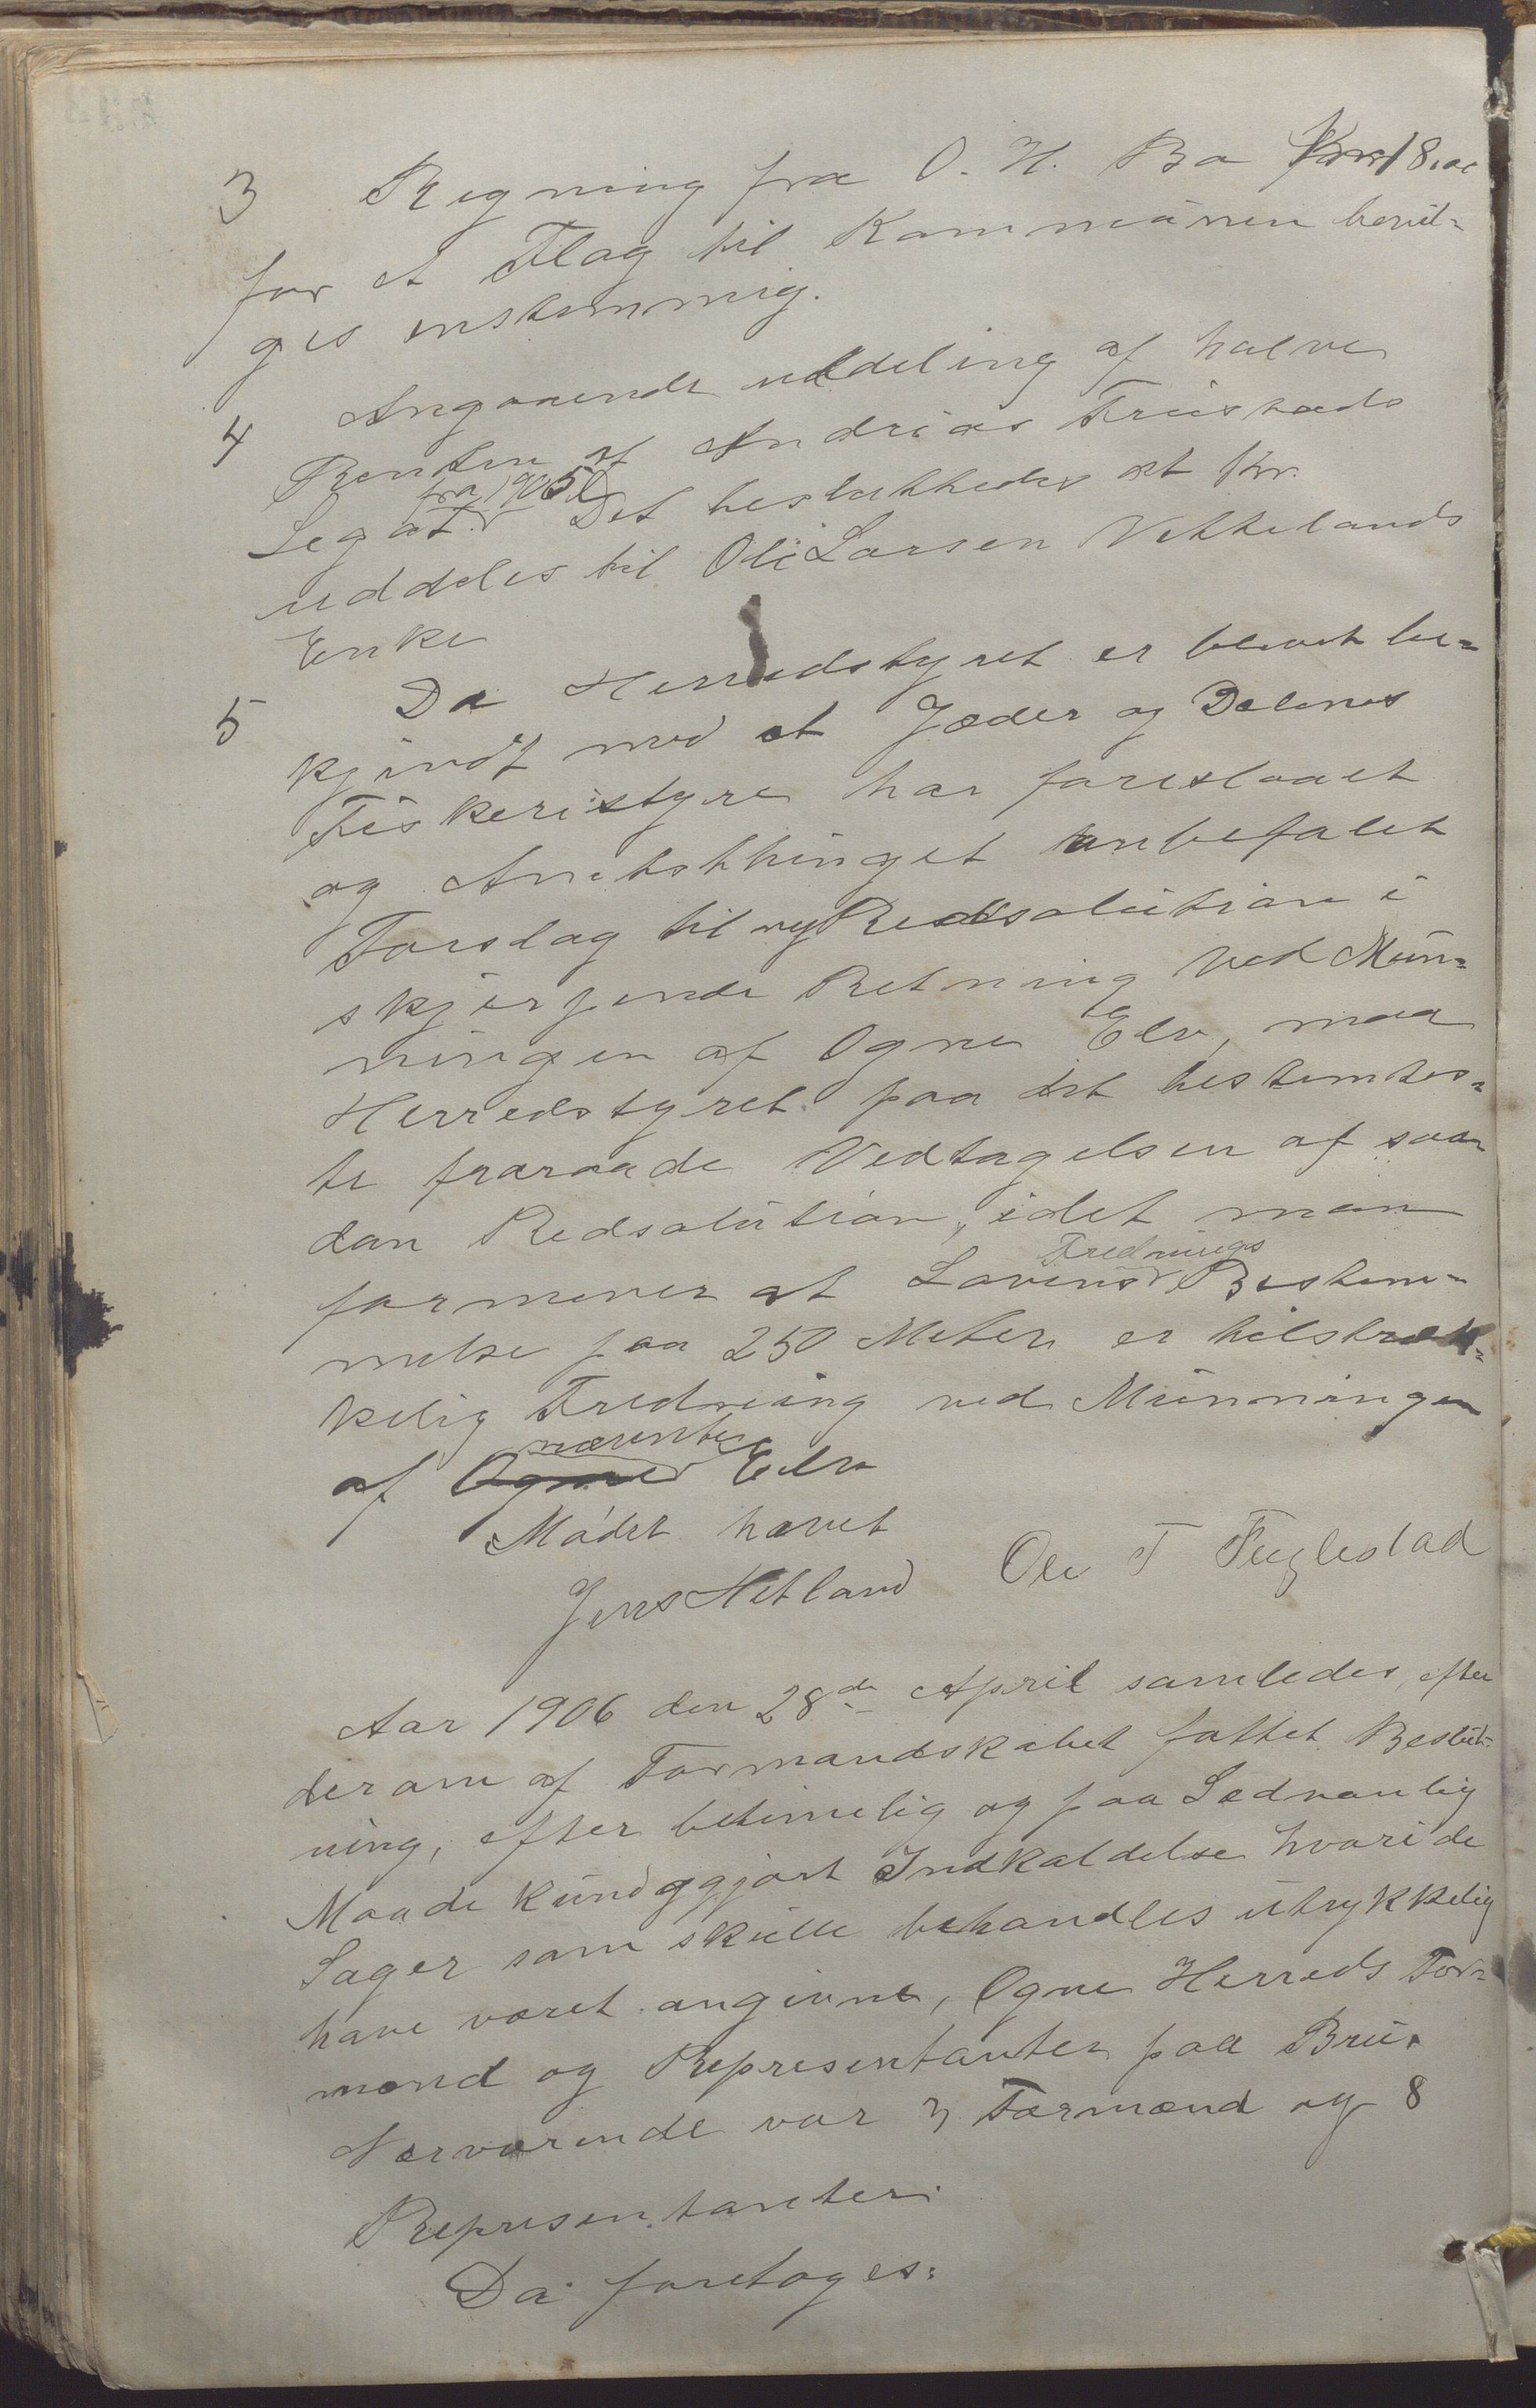 3 Regning fra O. H. Bø Kr 18.00
for et Flag til Kommunen bevil-
ges enstemmig.
4 Angaaende uddeling af halve
Renten af Andrias Friestads
Legat fra 1905. Det besluttedes at Kr.
uddeles til Ole Larsen Vettelands
Enke
5 Da Herredstyret er blevet be-
kjendt med at Jæder og Dalenes
Fiskeristyre har foreslaaet
og Amtsthinget anbefalet
Forslag til ny Redsolution i
skjerpende Retning ved Mun-
ningen af Ogne Elv, maa
Herredstyret paa det bestemtes-
te fraraade Vedtagelsen af saa-
dan Redsolution, idet man
formener at Lovens Frednings Bestem-
melse paa 250 Meter er tilstræk-
kelig Fredning ved Munningen
af Ogne nævnte Elv
Mødet hævet
Jens Hetland Ole T Fuglestad
Aar 1906 den 28de April samledes, efter
derom af Formandskabet fattet Beslut-
ning, efter betimelig og paa Sædvanlig
Maade kundggjort Indkaldelse hvori de
Sager som skulle behandles utrykkelig
have været angivne, Ogne Herreds For-
mænd og Representanter paa Bru.
Nærværende var 3 Formænd og 8
Representanter.
Da foretoges: